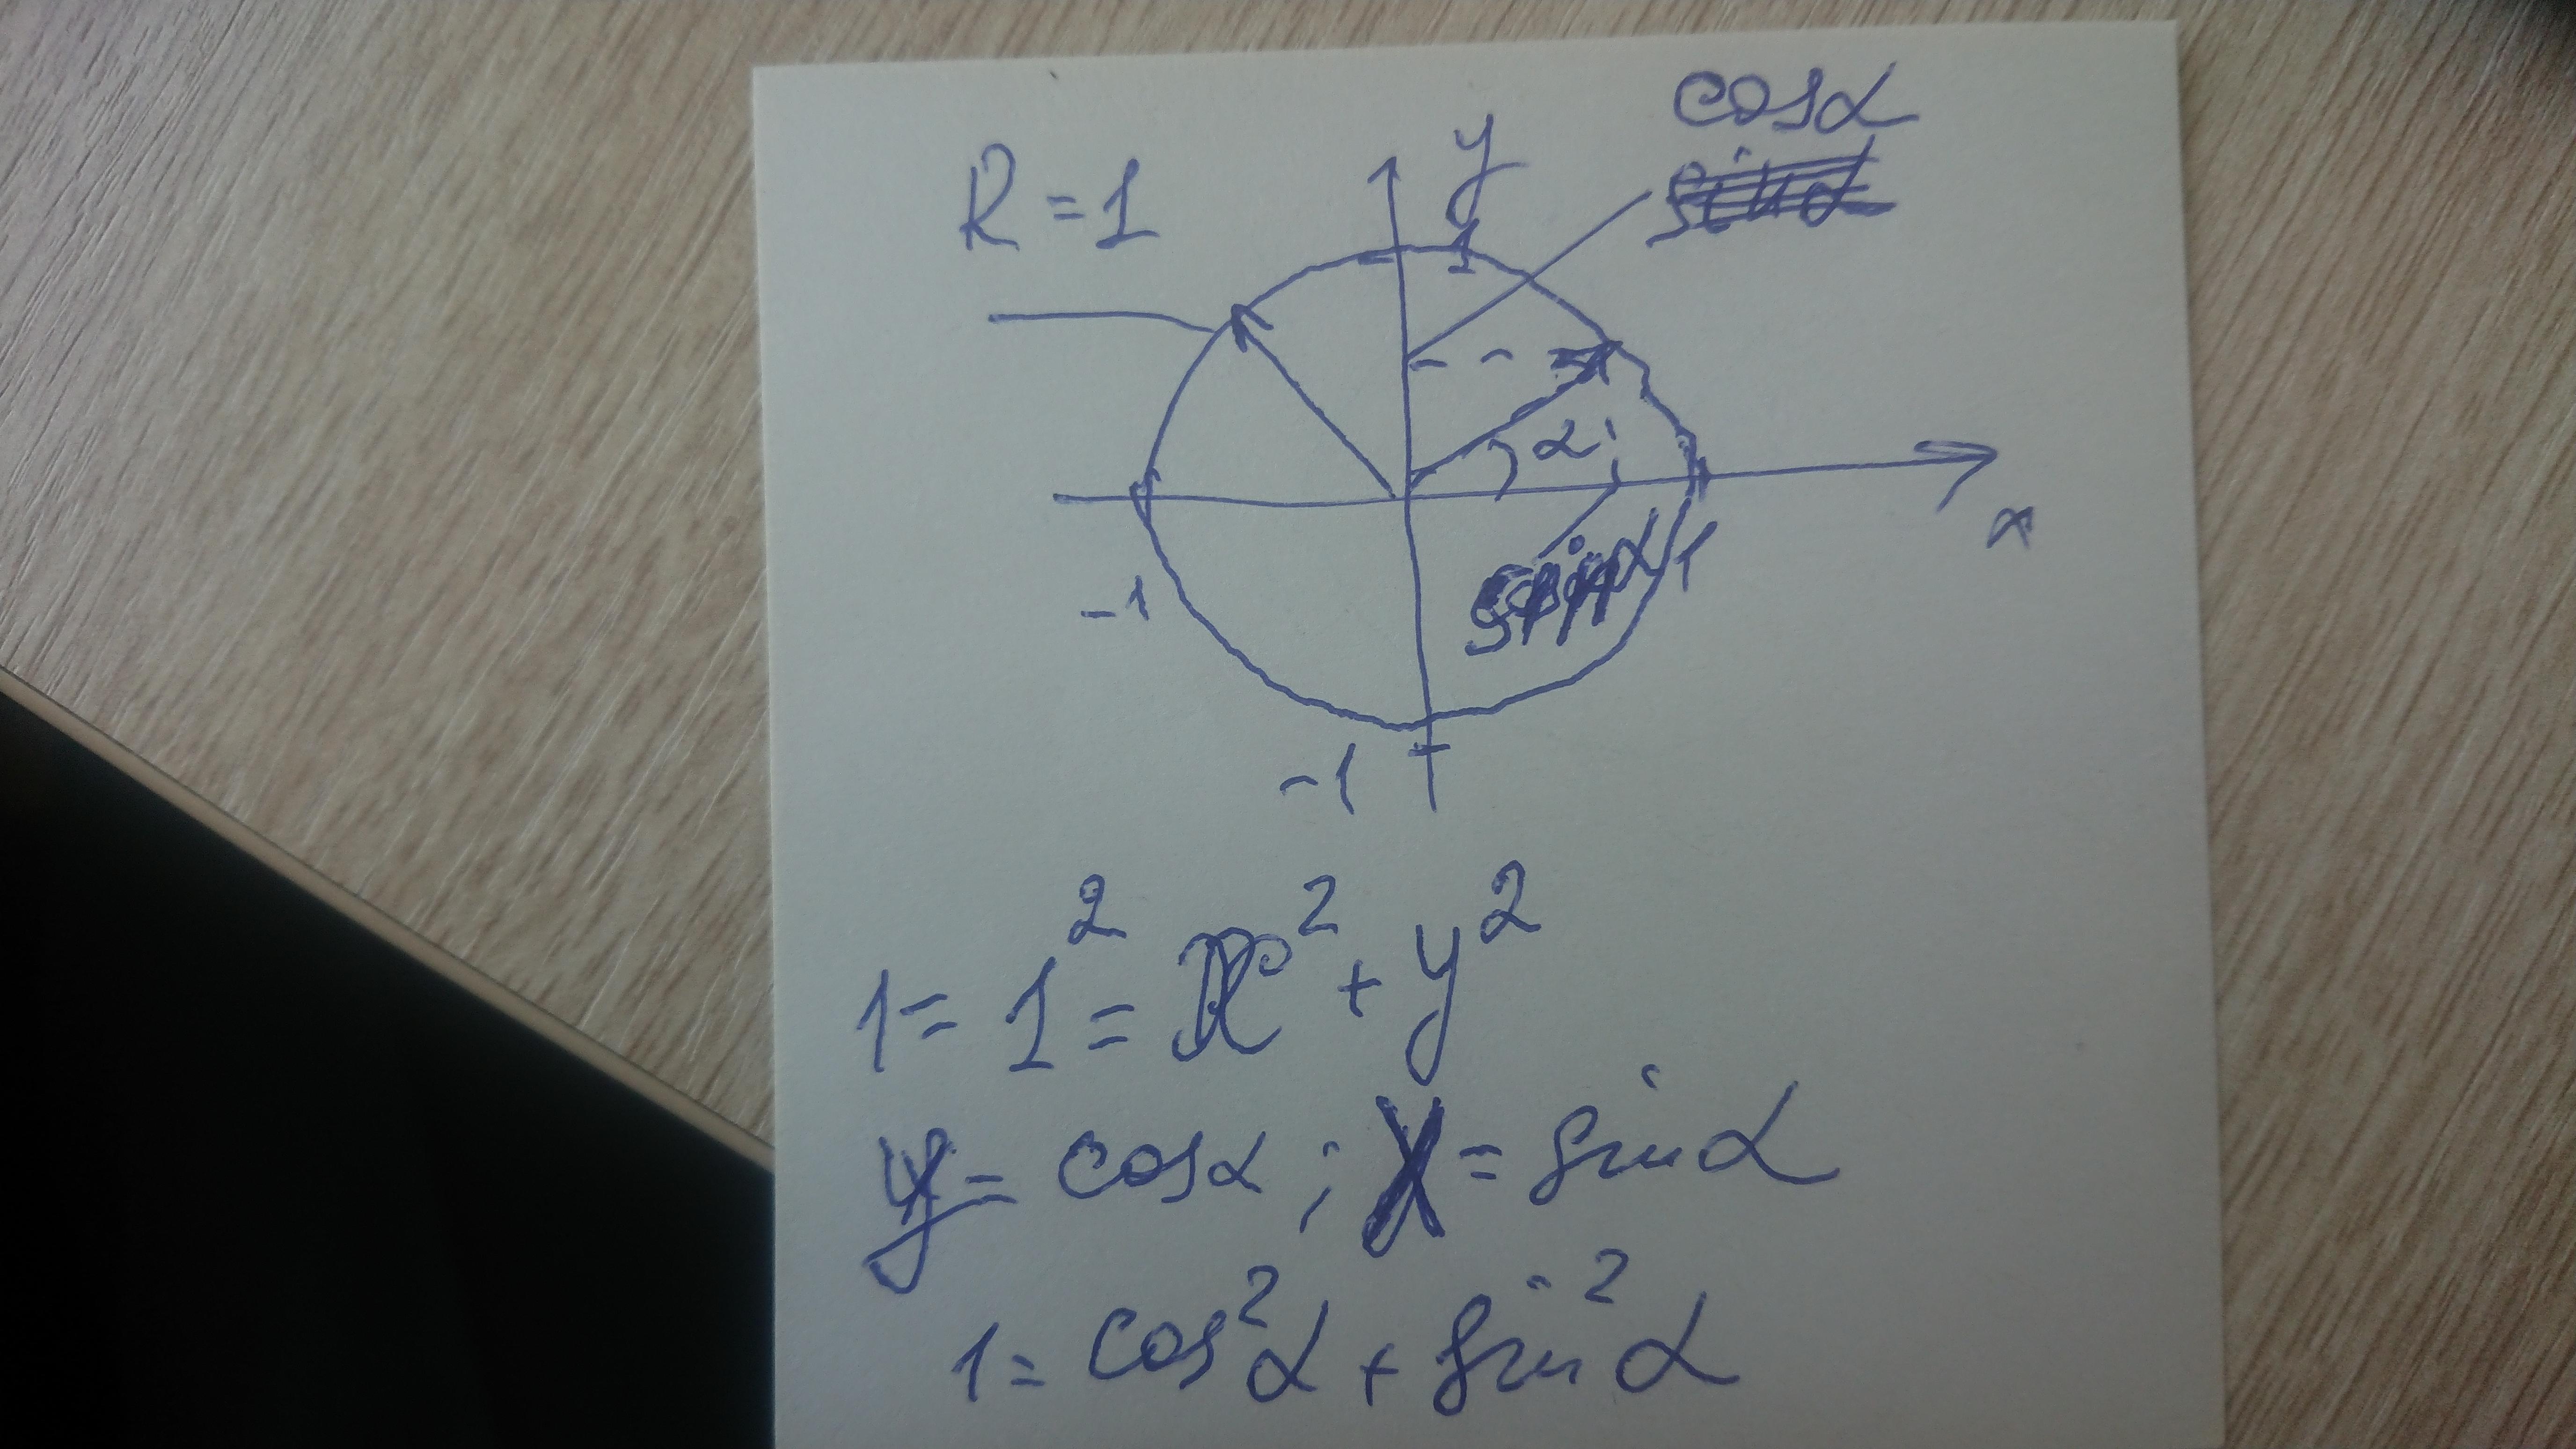 cosα
R = 1
y
1
α
x
sinα
1
-1
-1
1 = 1² = x² + y²
y = cosα ; x = sinα
1 = cos²α + sin²α